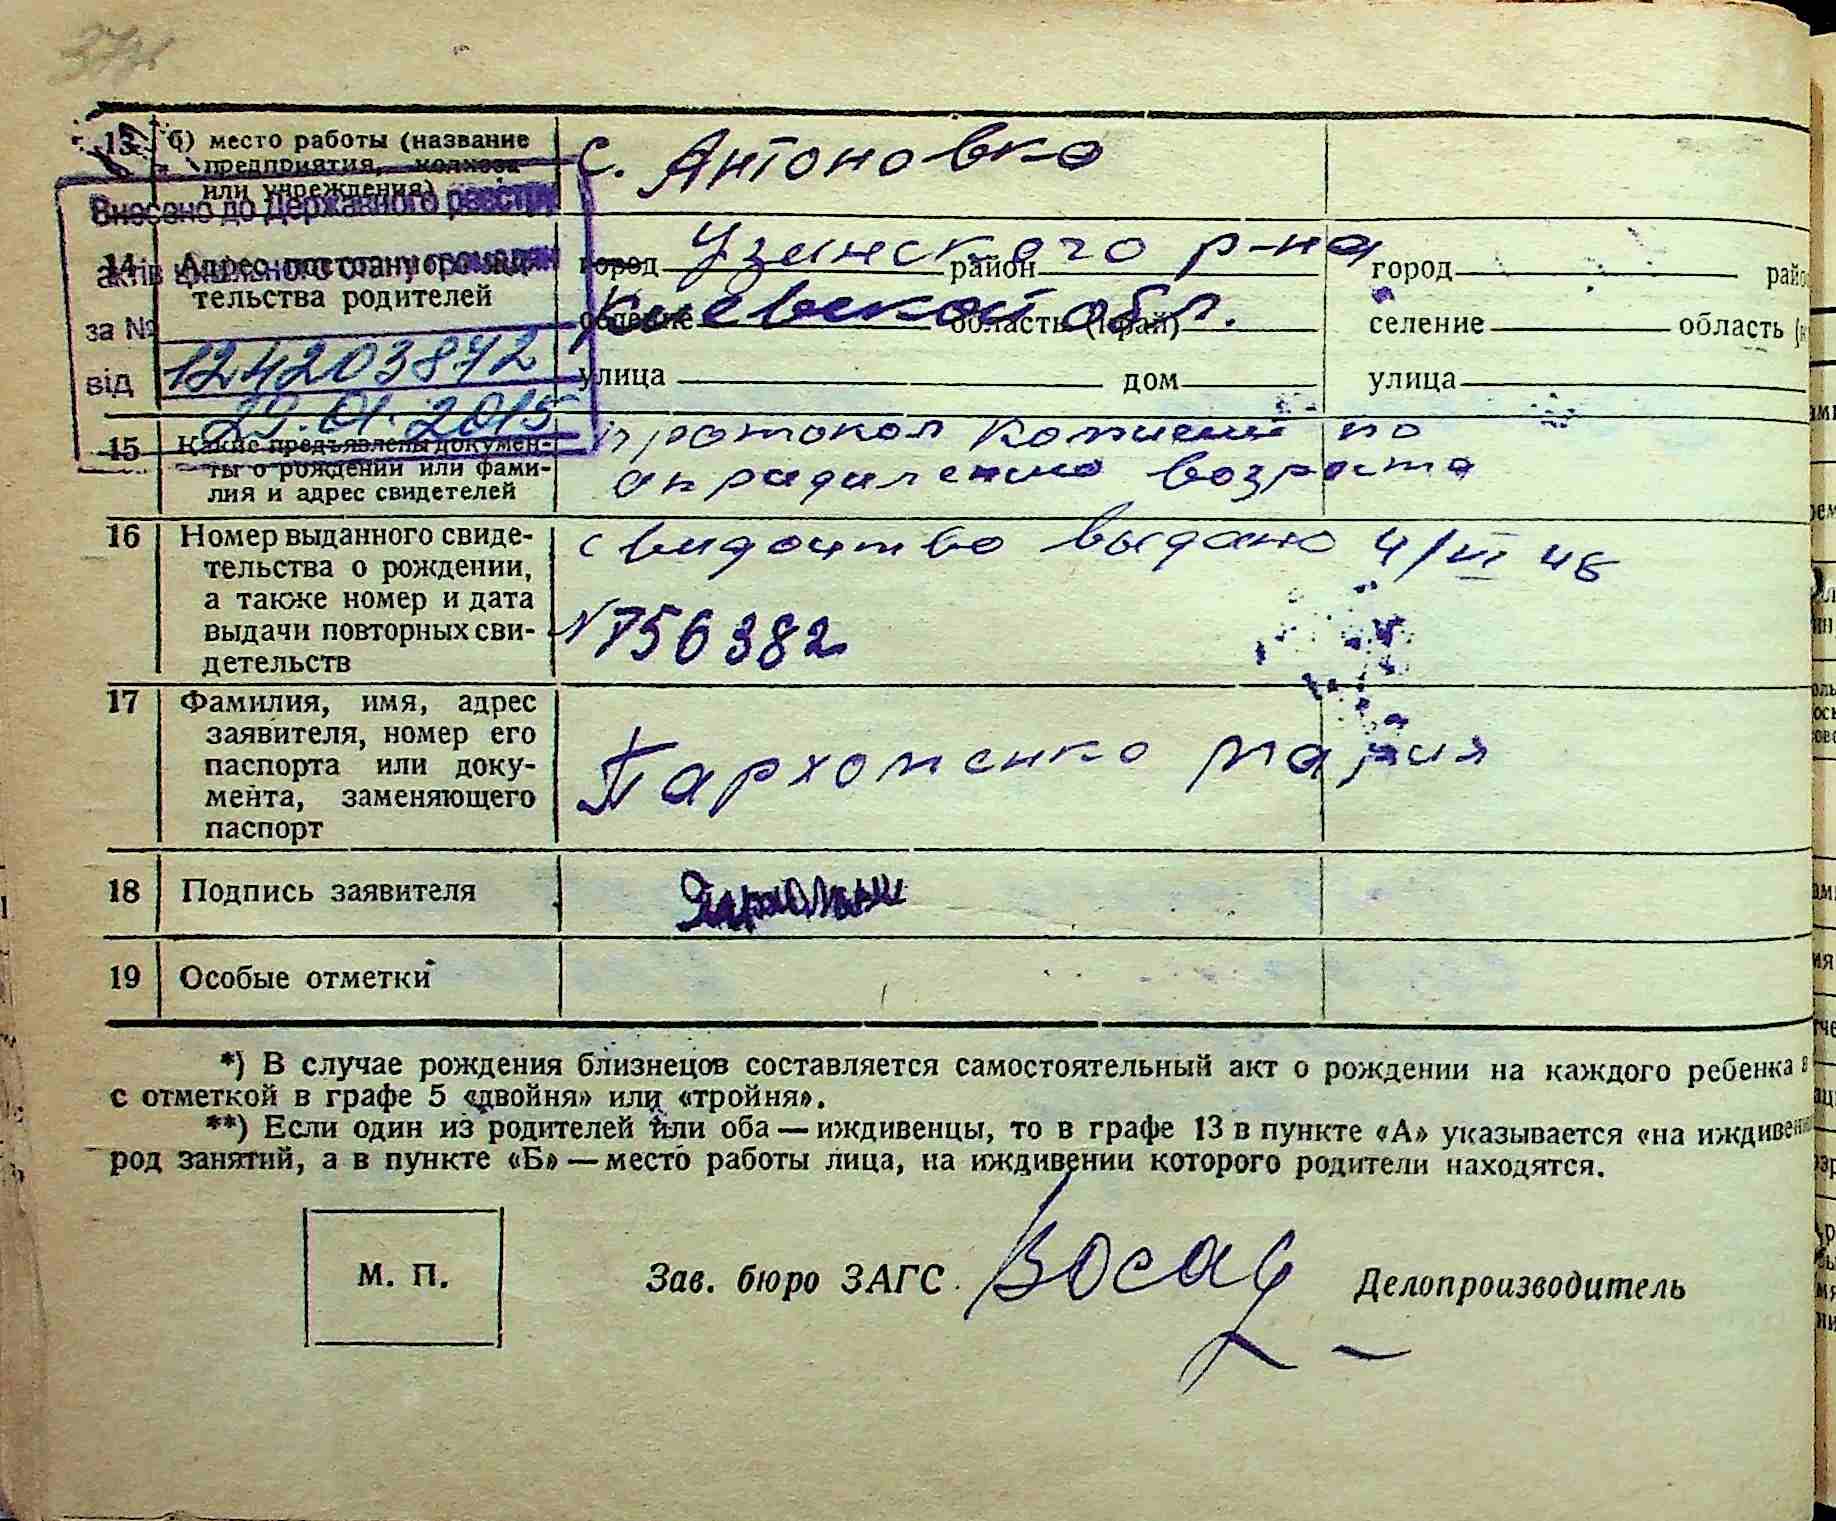 13 б) место работы (название
предприятия, колхоза
или учреждения)
с. Антоновка
Внесено до Державного реєстру
актів цивільного стану громадян
за № 124203872
від 29.01.2015
14 Адрес постоянного жительства родителей
Узинского р-на
город район
Киевской обл.
селение область (край)
улица дом
город райо
селение область (к
улица
15 Какие предъявлены докумен-
ты о рождении или фами-
лия и адрес свидетелей
протокол комисии по
опридилению возраста
16 Номер выданного свиде-
тельства о рождении,
а также номер и дата
выдачи повторных сви-
детельств
свидоитво выдано 4/VI 46
№756382
17 Фамилия, имя, адрес
заявителя, номер его
паспорта или доку-
мента, заменяющего
паспорт
Пархоменко Мария
18 Подпись заявителя
19 Особые отметки
*) В случае рождения близнецов составляется самостоятельный акт о рождении на каждого ребенка в
с отметкой в графе 5 «двойня» или «тройня».
**) Если один из родителей или оба — иждивенцы, то в графе 13 в пункте «А» указывается «на иждивении
род занятий, а в пункте «Б» — место работы лица, на иждивении которого родители находятся.
М. П.
Зав. бюро ЗАГС
Делопроизводитель